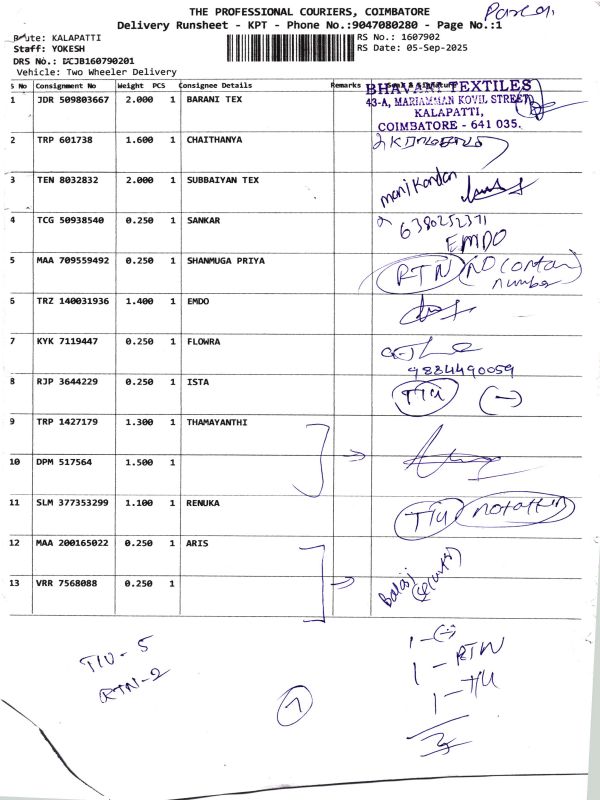 THE PROFESSIONAL COURIERS, COIMBATORE
Delivery Runsheet - KPT - Phone No.:9047080280 - Page No.:1
Route: KALAPATTI
RS No.: 1607902
Staff: YOKESH
RS Date: 05-Sep-2025
DRS No.: DCJB160790201
Vehicle: Two Wheeler Delivery
S No Consignment No Weight PCS Consignee Details Remarks Seal & Signature
BHAVANI TEXTILES
43-A, MARIAMMAN KOVIL STREET
KALAPATTI,
COIMBATORE - 641 035.
1 JDR 509803667 2.000 1 BARANI TEX
2 TRP 601738 1.600 1 CHAITHANYA
3 TEN 8032832 2.000 1 SUBBAIYAN TEX manikandan
4 TCG 50938540 0.250 1 SANKAR 6380252371
EMDO
5 MAA 709559492 0.250 1 SHANMUGA PRIYA RTN NO Contact
number
6 TRZ 140031936 1.400 1 EMDO
7 KYK 7119447 0.250 1 FLOWRA
9884490059
8 RJP 3644229 0.250 1 ISTA TIU (-)
9 TRP 1427179 1.300 1 THAMAYANTHI
10 DPM 517564 1.500 1
11 SLM 377353299 1.100 1 RENUKA TIU
12 MAA 200165022 0.250 1 ARIS
13 VRR 7568088 0.250 1 Balaji
1-(-)
TIU-5
1-RTN
RTN-2
1-TIU
7
3